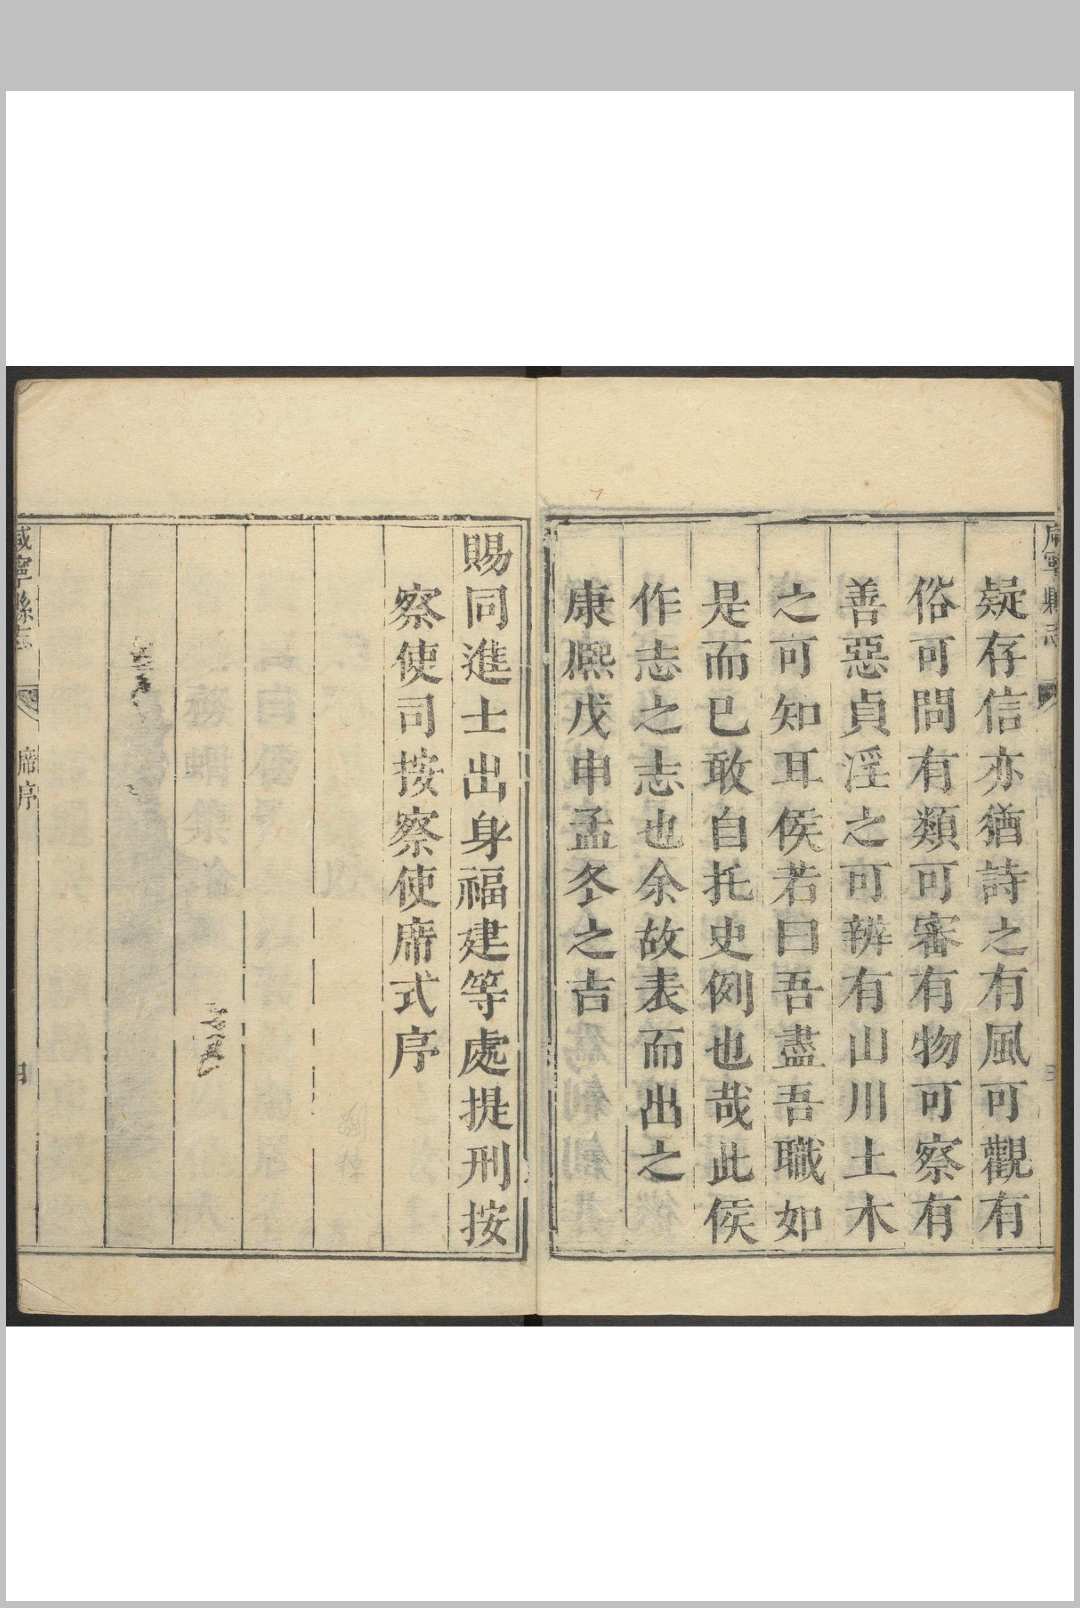 寧縣志
疑存信亦猶詩之有風可觀有
俗可問有類可審有物可察有
善惡貞淫之可辨有山川土木
之可知耳侯若曰吾盡吾職如
是而已敢自托史例也哉此侯
作志之志也余故表而出之
康熈戊申孟冬之吉
賜同進士出身福建等處提刑按
察使司按察使席式序
咸寧縣志
席序
四